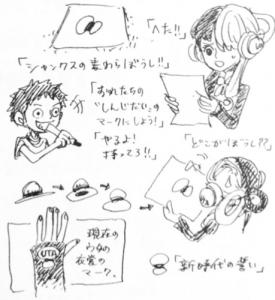 「へた!!」
「シャンクスの麦わらぼうし!!」
「おれたちの
"しんじだい"の
マークにしよう!」
「やるよ!
持ってろ!!」
「どこがぼうし??」
現在の
ウタの
衣装の
マーク。
UTA
「新時代の誓い」